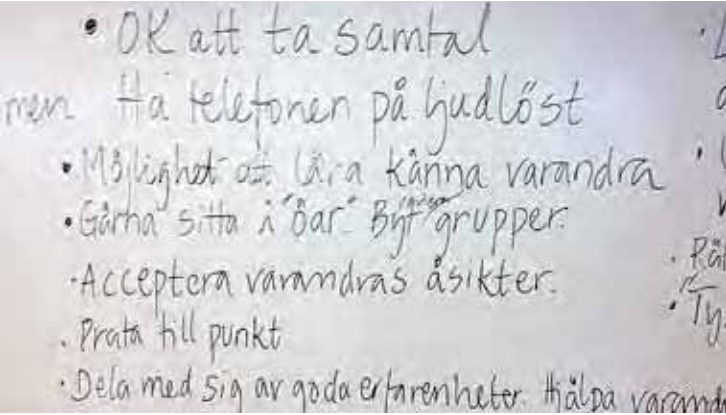 • OK att ta samtal
men Ha telefonen på ljudlöst
• Möjlighet att lära känna varandra
• Gärna sitta i "öar". Byt grupper.
• Acceptera varandras åsikter.
• Prata till punkt
• Dela med sig av goda erfarenheter. Hjälpa